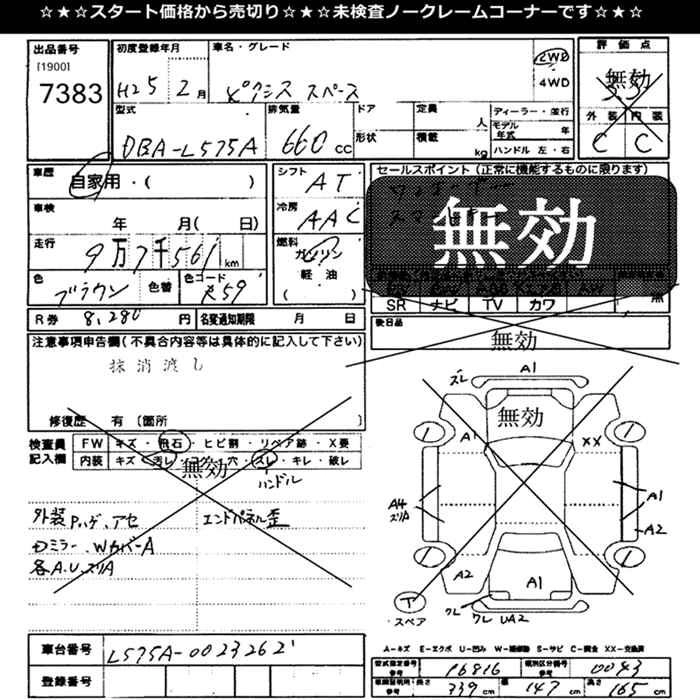 ☆★☆スタート価格から売切り☆★☆未検査ノークレームコーナーです☆★☆
出品番号
[1900]
7383
初度登録年月
H25 2月
車名・グレード
ピクシス スペース
2WD
4WD
評価点
無効
外装 内装
C C
型式
DBA-L575A
排気量
660cc
ドア
形状
定員
人
積載
kg
ディーラー・並行
モデル年式 年
ハンドル 左・右
車歴
自家用・( )
車検
年 月( 日)
走行
9万7千561km
色
ブラウン
色替
色コード
R59
シフト
AT
冷房
AAC
燃料
ガソリン
軽・油
( )
セールスポイント(正常に機能するものに限ります)
無効
SR ナビ TV カワ 無
R券 8,280円
名変通知期限 月 日
後日品
無効
注意事項申告欄(不具合内容等は具体的に記入して下さい)
抹消渡し
修復歴 有〔箇所 〕
検査員記入欄
FW キズ・飛石・ヒビ割・リペア跡・X要
内装 キズ・汚レ・コゲ・穴・ズレ・キレ・破レ
無効
ハンドル
外装 Pハゲ、アセ
エンドパネル歪
ドミラー、WカバーA
各A.U.スリA
車台番号
L575A-0023262
登録番号
無効
ズレ
A1
1
1
A1
XX
A4
スリA
A1
A2
1
1
A2
A1
T
スペア
ワレ
ワレ UA2
A-キズ E-エクボ U-凹み W-補修跡 S-サビ C-腐食 XX-交換済
型式指定番号
参考
16816
類別区分番号
参考
0043
車検証明用・長さ
参考
339cm
幅
147cm
高さ
165cm